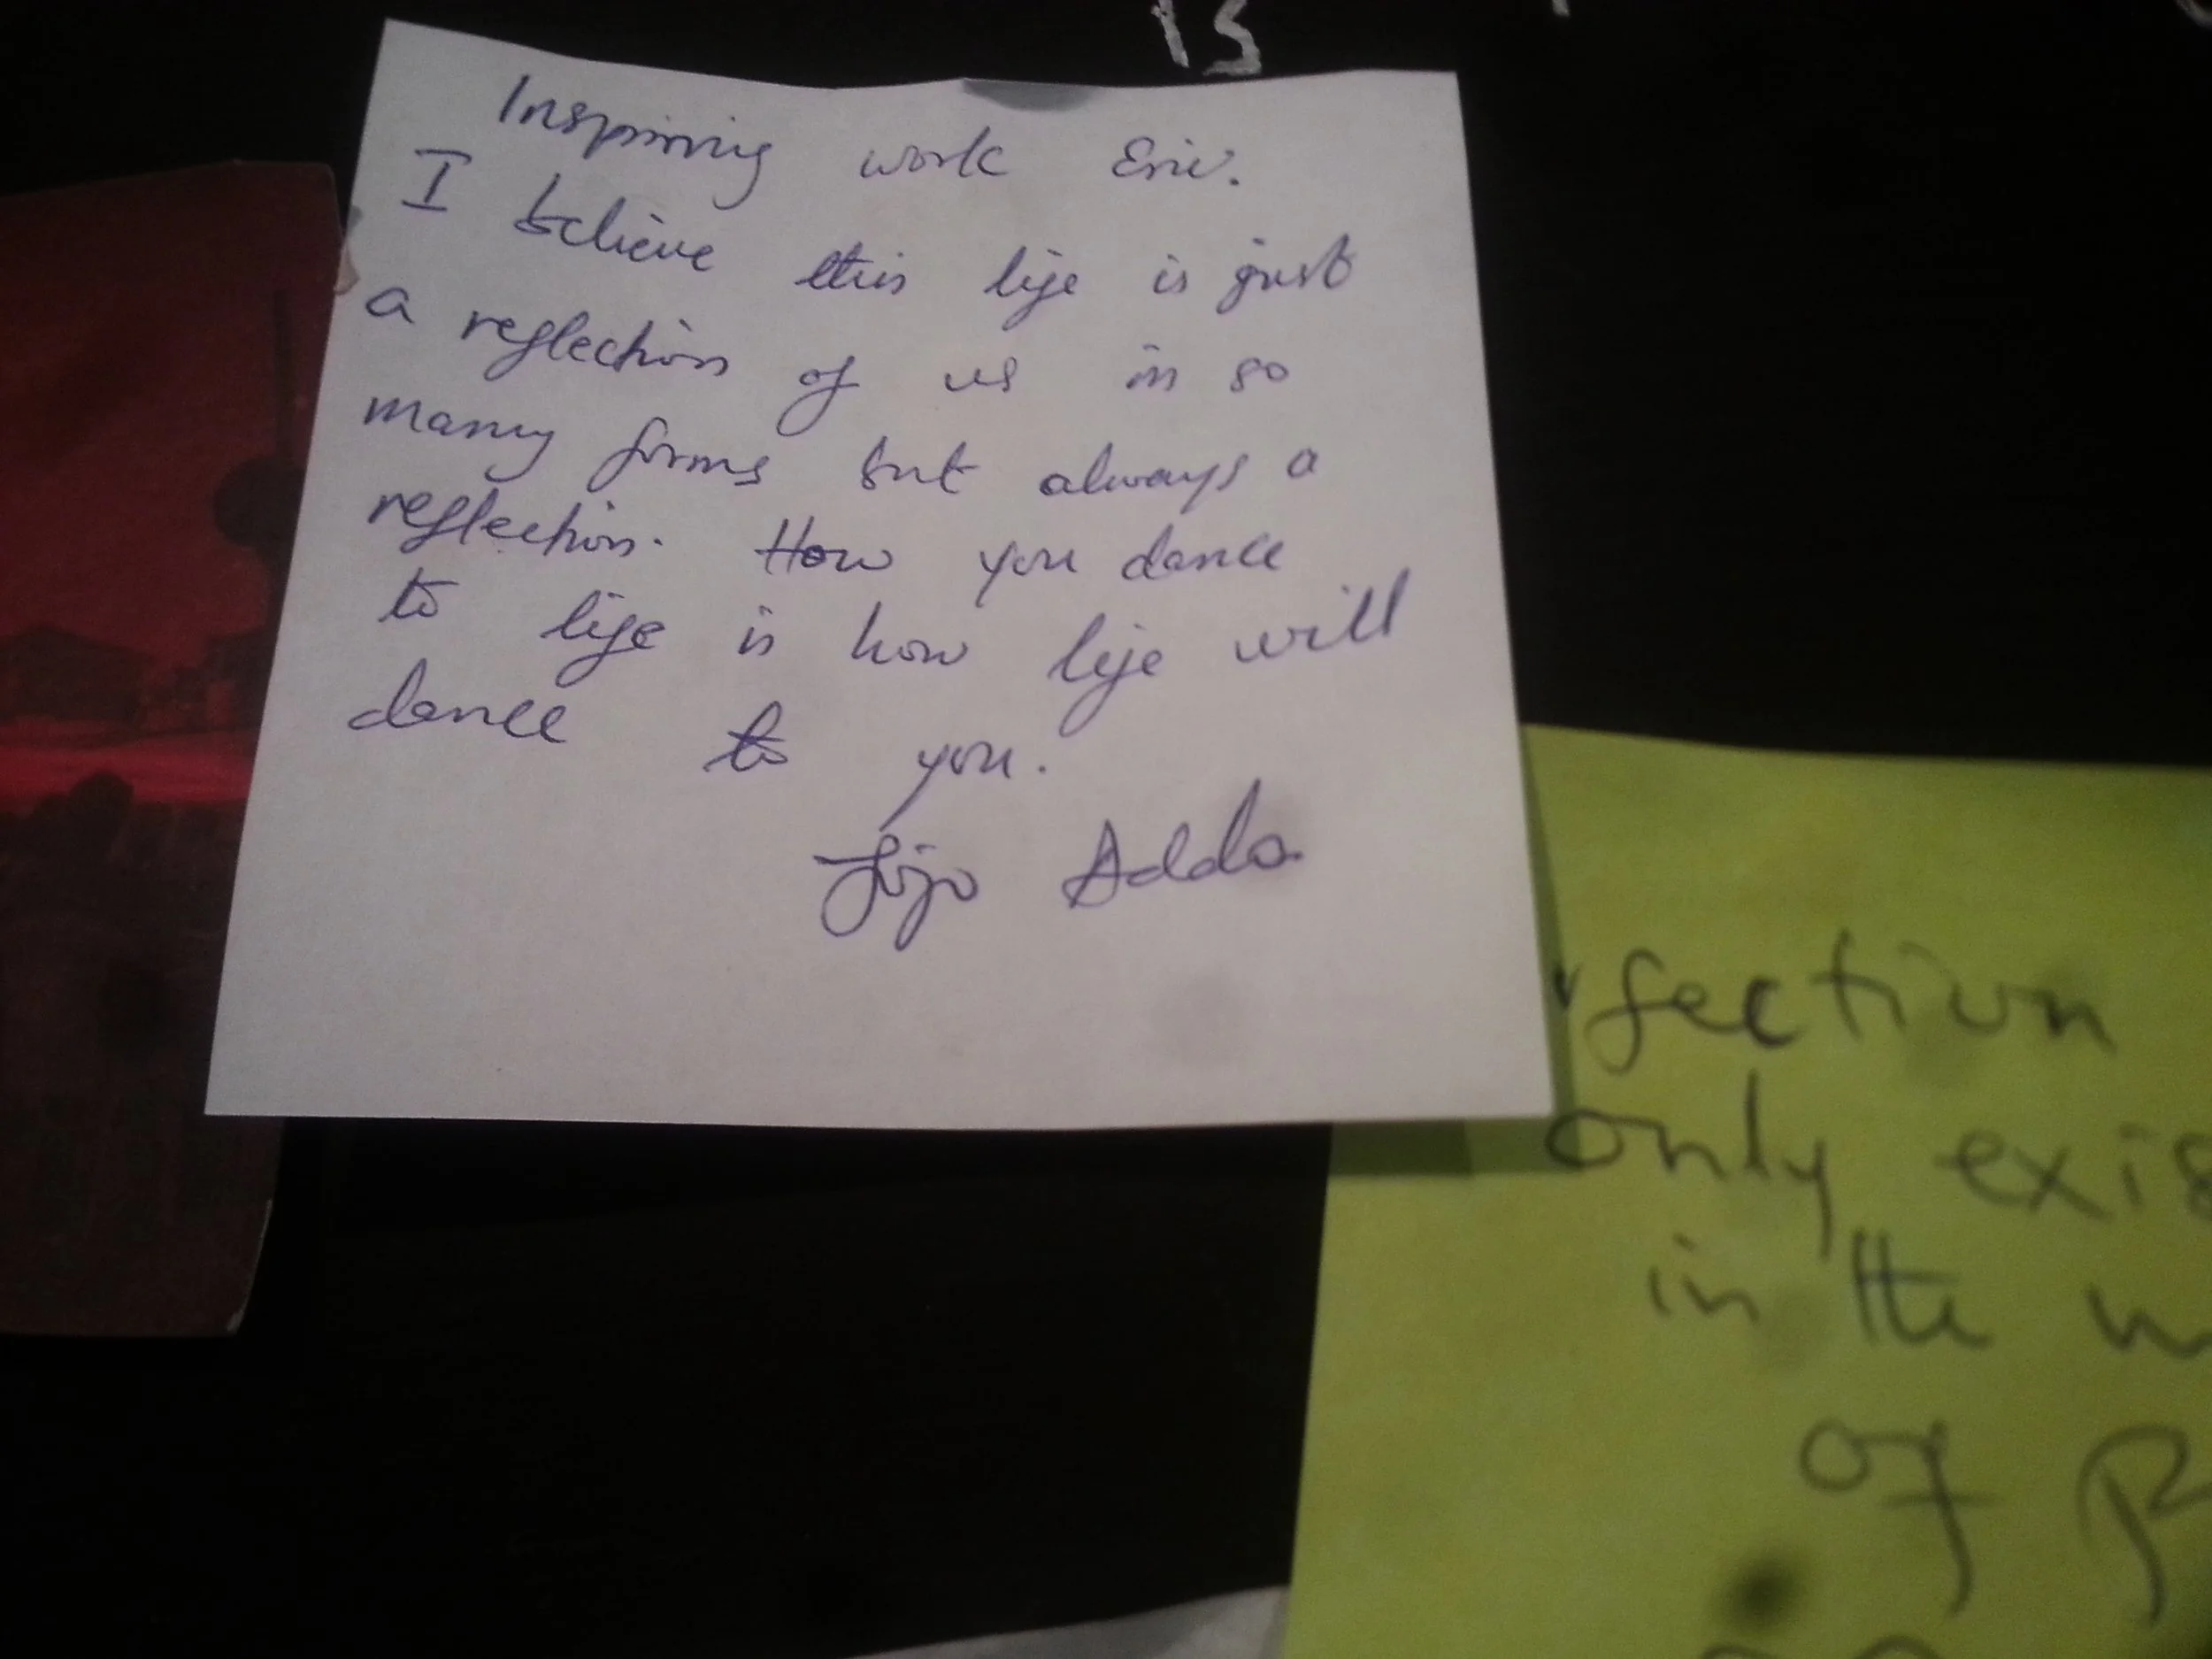 is
Inspiring work Eric.
I believe this life is just
a reflection of us in so
many forms but always a
reflection. How you dance
to life is how life will
dance to you.
Jojo Addo
rfection
only exis
in the
of